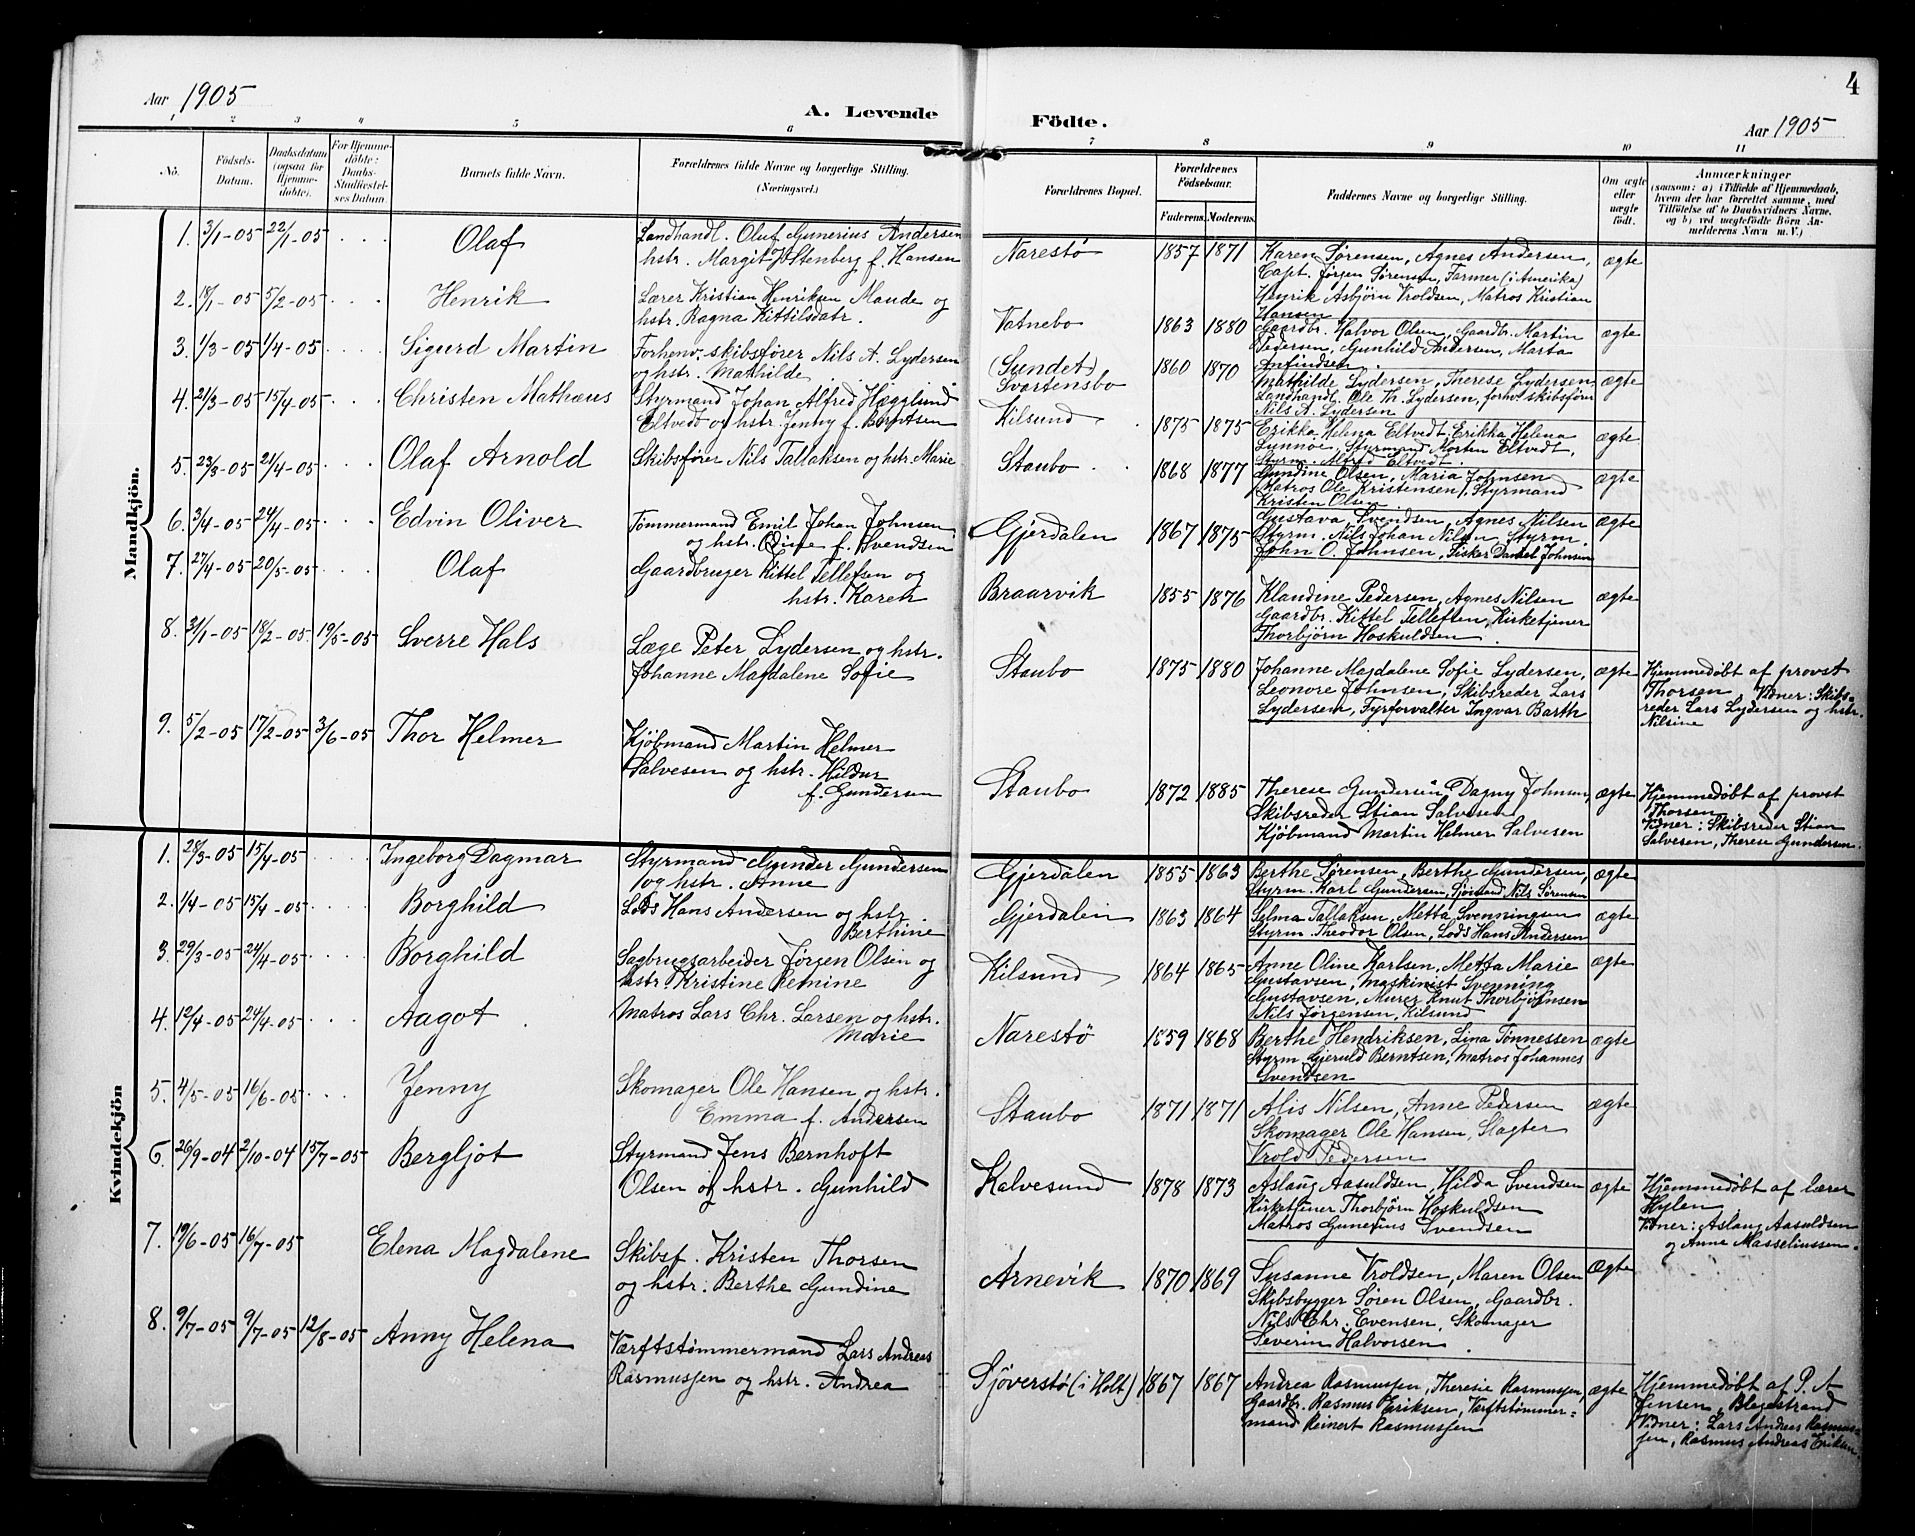 Aar 1905
A. Levende
Födte.
Aar 1905
4
1 2 3 4 5 6 7 8 9 10 11
No.
Födsels-Datum.
Daabsdatum (ogsaa for Hjemme-döbte).
For Hjemme-döbte: Daabs-Stadfæstel-ses Datum.
Barnets fulde Navn.
Forældrenes fulde Navne og borgerlige Stilling.
(Næringsvei.)
Forældrenes Bopæl.
Forældrenes Födselsaar.
Faderens. Moderens.
Faddernes Navne og borgerlige Stilling.
Om ægte eller uægte födt.
Anmærkninger
(saasom: a) i Tilfælde af Hjemmedaab,
hvem der har forrettet samme, med
Tilföielse af to Daabsvidners Navne,
og b) ved uægtefödte Börn An-
melderens Navn m. V.)
Mandkjön.
1. 3/1-05 22/1-05 Olaf
Landhandl. Oluf Gunerius Andersen
hstr. Margit Stenberg f. Hansen
Narestø 1857 1871
Karen Sørensen, Agnes Andersen,
Capt. Jørgen Sørensen, Farmer (i Amerika)
Henrik Asbjørn Vroldsen, Matros Kristian
Hansen
ægte
2. 18/1-05 5/2-05 Henrik
Lærer Kristian Henriksen Maude og
hstr. Ragna Kittilsdatr.
Vatnebo 1863 1880
Gaardbr. Halvor Olsen, Gaardbr. Martin
Pedersen, Gunhild Andersen, Marta
Anfindsen.
ægte
3. 1/3-05 1/4-05 Sigurd Martin
Forhenv. skibsfører Nils A. Lydersen
og hstr. Mathilde
(Sundet)
Svartensbo 1860 1870
Mathilde Lydersen, Therese Lydersen
Landhandl. Ole Th. Lydersen, forhv skibsfører
Nils A. Lydersen
ægte
4. 21/3-05 15/4-05 Christen Mathæus
Styrmand Johan Alfred Hægglund
Eltvedt og hstr. Jenny f. Berntsen
Kilsund 1875 1875
Erikka Helena Eltvedt, Erikka Helena
Lunnøe, Styrmand Morten Eltvedt,
Styrm. Alfred Eltvedt.
ægte
5. 23/3-05 21/4-05 Olaf Arnold
Skibsfører Nils Tallaksen og hstr. Marie
Staubo 1868 1877
Gundine Olsen, Maria Johnsen
Matros Ole Kristensen, Styrmand
Kristen Olsen
ægte
6. 3/4-05 24/4-05 Edvin Oliver
Tømmermand Emil Johan Johnsen
og hstr. Oline f. Svendsen
Gjerdalen 1867 1875
Gustava Svendsen, Agnes Nilsen
Styrm. Nils Johan Nilsen, Styrm.
John O. Johnsen, Fisker Daniel Johnsen
ægte
7. 27/4-05 20/5-05 Olaf
Gaardbruger Kittel Tellefsen og
hstr. Karen
Braarvik 1855 1876
Klandine Pedersen, Agnes Nilsen
Gaardbr. Kittel Tellefsen, Kirketjener
Thorbjørn Hoskuldsen.
ægte
8. 31/1-05 18/2-05 19/5-05 Sverre Hals
Læge Peter Lydersen og hstr.
Johanne Magdalene Sofie
Staubo 1875 1880
Johanne Magdalene Sofie Lydersen,
Leonore Johnsen, Skibsreder Lars
Lydersen, Fyrforvalter Ingvar Barth
ægte
Hjemmedøbt af provst
Thorsen. Vidner: Skibs-
reder Lars Lydersen og hstr.
Nilsine
9. 5/2-05 17/2-05 3/6-05 Thor Helmer
Kjøbmand Martin Helmer
Salvesen og hstr. Hildur
f. Gundersen
Staubo 1872 1885
Therese Gundersen, Dagny Johnsen,
Skibsreder Stian Salvesen
Kjøbmand Martin Helmer Salvesen
ægte
Hjemmedøbt af provst
Thorsen
Vidner: Skibsreder Stian
Salvesen, Therese Gundersen.
Kvindekjön
1. 28/3-05 15/4-05 Ingeborg Dagmar
Styrmand Gunder Gundersen
og hstr. Anne
Gjerdalen 1855 1863
Berthe Sørensen, Berthe Gundersen,
Styrm. Karl Gundersen, Sjømand Nils Sørensen
ægte
2. 1/4-05 15/4-05 Borghild
Lods Hans Andersen og hstr.
Berthine
Gjerdalen 1863 1864
Selma Tallaksen, Metta Svenningsen
Styrm. Theodor Olsen, Lods Hans Andersen
ægte
3. 29/3-05 24/4-05 Borghild
Sagbrugsarbeider Jørgen Olsen og
hstr Kristine Remine
Kilsund 1864 1865
Anne Oline Karlsen, Metta Marie
Gustavsen, Maskinist Svenning
Gustavsen, Murer Knut Thorbjørnsen
Nils Jørgensen, Kilsund
ægte
4. 12/4-05 24/4-05 Aagot
Matros Lars Chr. Larsen og hstr.
Marie
Narestø 1859 1868
Berthe Hendriksen, Lina Tønnessen
Styrm Gjeruld Berntsen, Matros Johannes
Svendsen
ægte
5. 4/5-05 16/6-05 Jenny
Skomager Ole Hansen og hstr.
Emma f. Andersen
Staubo 1871 1871
Alis Nilsen, Anne Pedersen
Skomager Ole Hansen, Slagter
Vrold Pedersen
ægte
6. 26/9-04 2/10-04 15/7-05 Bergljot
Styrmand Jens Bernhoft
Olsen og hstr. Gunhild
Kalvesund 1878 1873
Aslaug Aasuldsen, Hilda Svendsen
Kirketjener Thorbjørn Hoskuldsen
Matros Gunerius Svendsen
ægte
Hjemmedøbt af lærer
Hylen
Vidner: Aslaug Aasuldsen
og Anne Masseliussen.
7. 19/6-05 16/7-05 Elena Magdalene
Skibsf. Kristen Thorsen
og hstr. Berthe Gundine
Arnevik 1870 1869
Susanne Vroldsen, Maren Olsen
Skibsbygger Søren Olsen, Gaardbr.
Nils Chr. Evensen, Skomager
Severin Halvorsen.
ægte
8. 9/7-05 9/7-05 12/8-05 Anny Helena
Værftstømmermand Lars Andreas
Rasmussen og hstr. Andrea
Sjøverstø (i Holt) 1867 1867
Andrea Rasmussen, Theresie Rasmussen,
Gaardbr. Rasmus Eriksen, Værftstømmer-
mand Reinert Rasmussen
ægte
Hjemmedøbt af P. A
Jensen, Blegestrand
Vidner: Lars Andreas Rasmus-
sen, Rasmus Andreas Eriksen